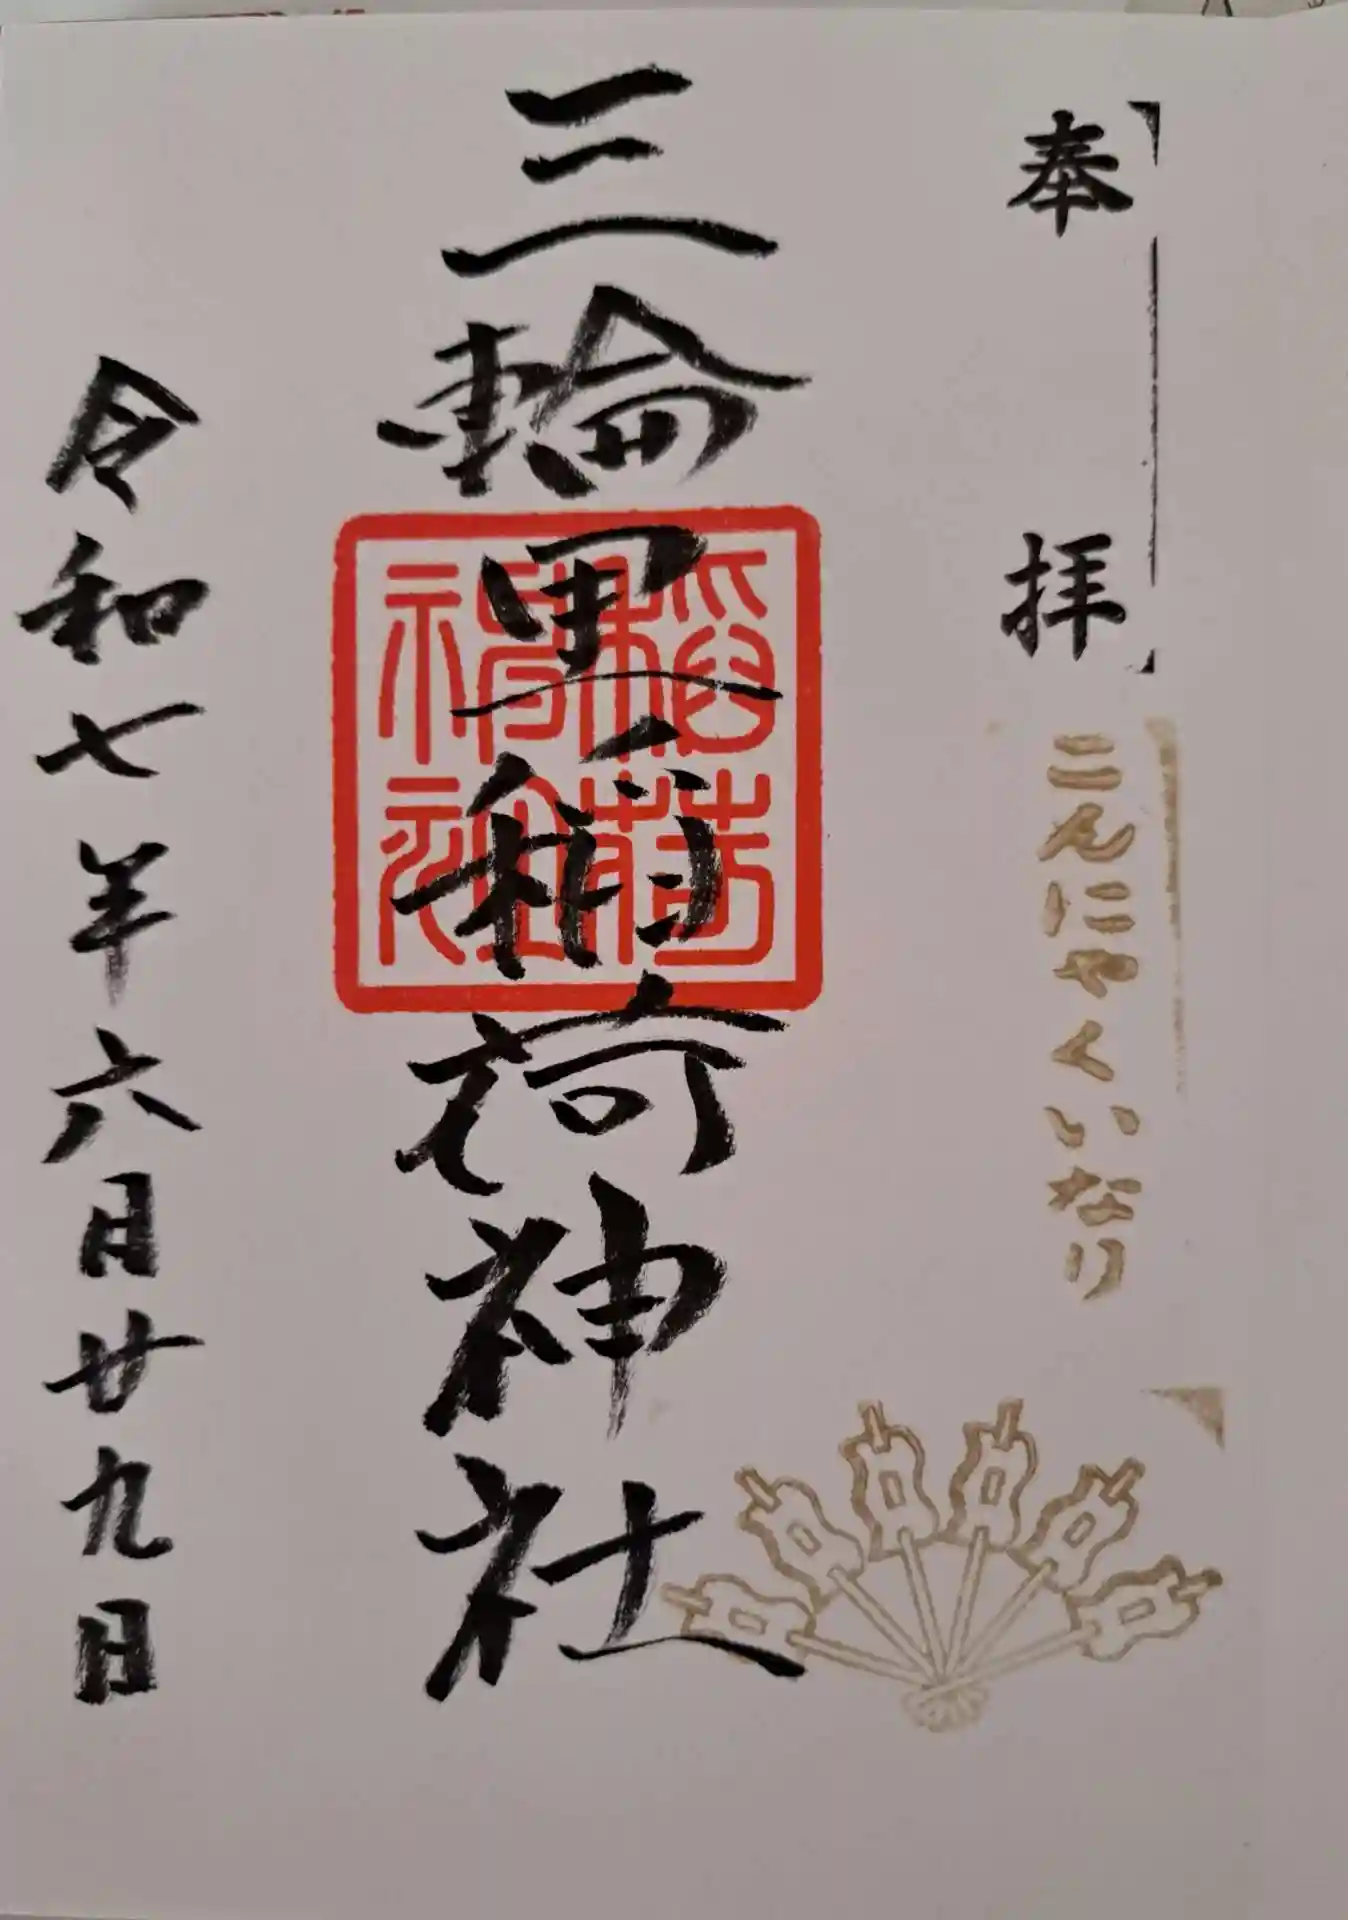 奉拝
こんにやくいなり
三輪里稲荷神社
稲荷神社
令和七年六月廿九日